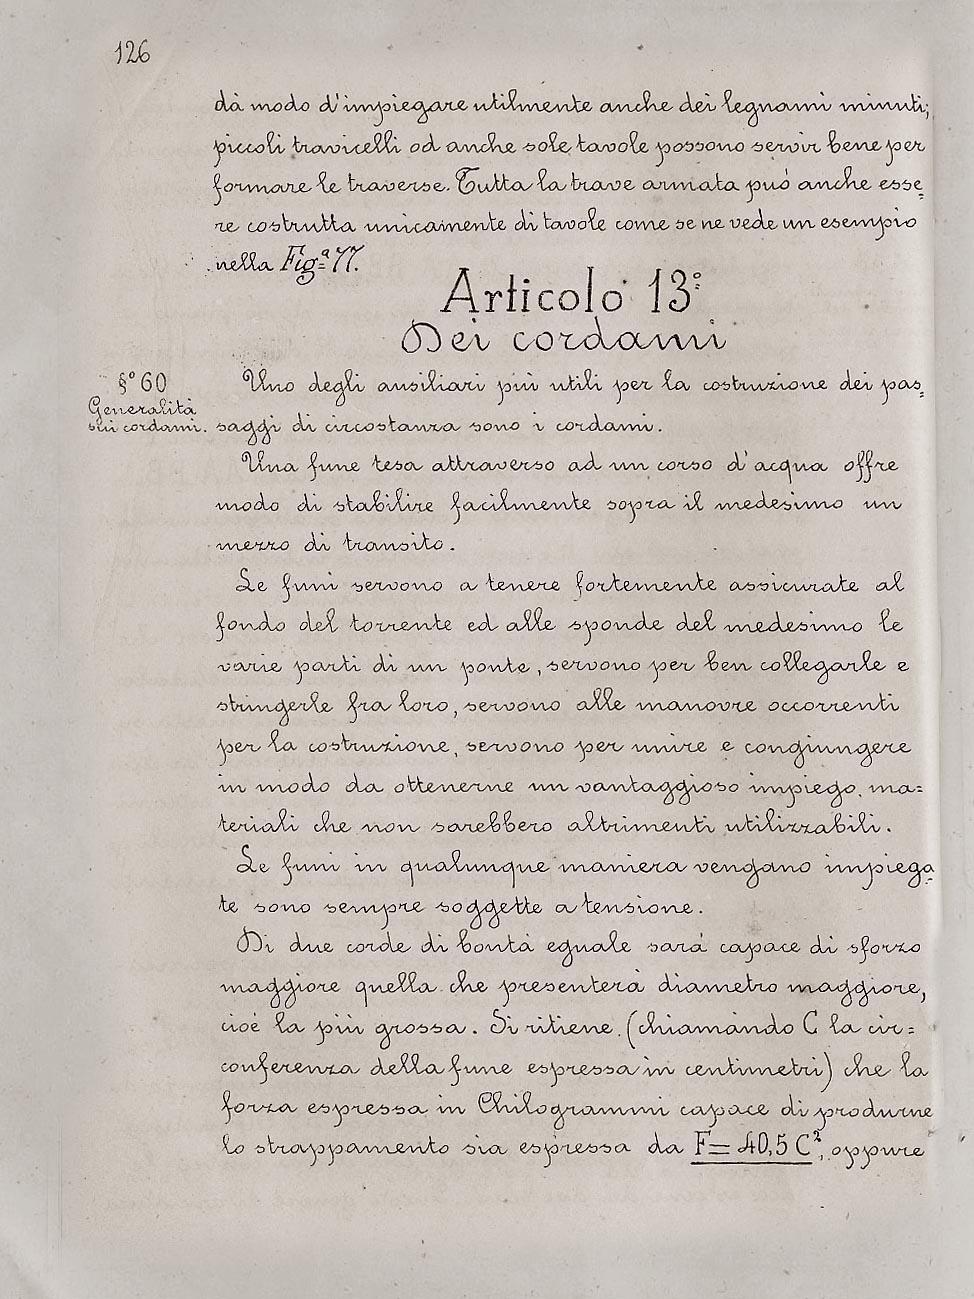 126
dà modo d'impiegare utilmente anche dei legnami minuti;
piccoli travicelli od anche sole tavole possono servir bene per
formare le traverse. Tutta la trave armata può anche esse=
re costrutta unicamente di tavole come se ne vede un esempio
nella Fig.ª 77.
Articolo 13º
Dei cordami
§º 60
Generalità
sui cordami.
Uno degli ausiliari più utili per la costruzione dei pas=
saggi di circostanza sono i cordami.
Una fune tesa attraverso ad un corso d'acqua offre
modo di stabilire facilmente sopra il medesimo un
mezzo di transito.
Le funi servono a tenere fortemente assicurate al
fondo del torrente ed alle sponde del medesimo le
varie parti di un ponte, servono per ben collegarle e
stringerle fra loro, servono alle manovre occorrenti
per la costruzione, servono per unire e congiungere
in modo da ottenerne un vantaggioso impiego, ma=
teriali che non sarebbero altrimenti utilizzabili.
Le funi in qualunque maniera vengano impiega=
te sono sempre soggette a tensione.
Di due corde di bontà eguale sarà capace di sforzo
maggiore quella che presenterà diametro maggiore,
cioè la più grossa. Si ritiene (chiamando C la cir=
conferenza della fune espressa in centimetri) che la
forza espressa in Chilogrammi capace di produrne
lo strappamento sia espressa da F = 40,5 C², oppure